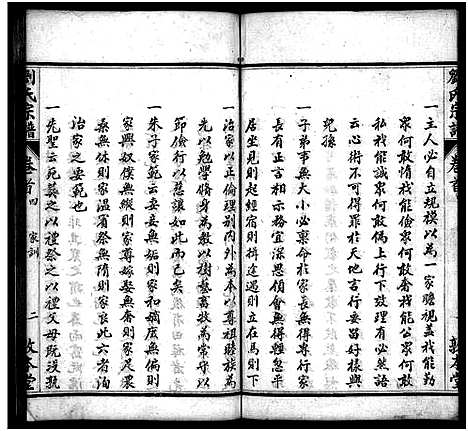 劉氏宗譜
卷首
一主人必自立規模以為一家瞻視蓋我能勤
眾何敢惰我能儉眾何敢奢我能公眾何敢
私我能誠眾何敢偽上行下效理有必然語
云心術不可得罪於天地言行要留好樣與
兒孫
一子弟有大小必稟命於家長子弟無得專行家
長有正言相示務宜深思值會無得輕忽平
居坐見則起經宿則揖途遇則立在馬則下
一治家以正倫理別內外為本以尊祖睦族為
先以勉學脩身為教以樹藝畜牧為常守以
節儉行以慈讓如此而已矣
一朱子家範云妾無妬則家和嫡庶無偏則家
興奴僕無縱則家尊嫁娶無奢則家足農
桑無休則家溫賓祭無隋則家良此六者洵
治家之要範也
一先聖云死葬之以禮祭之以禮父母既沒窀
劉氏宗譜
卷首四
家訓
二
敦本堂
敦本堂